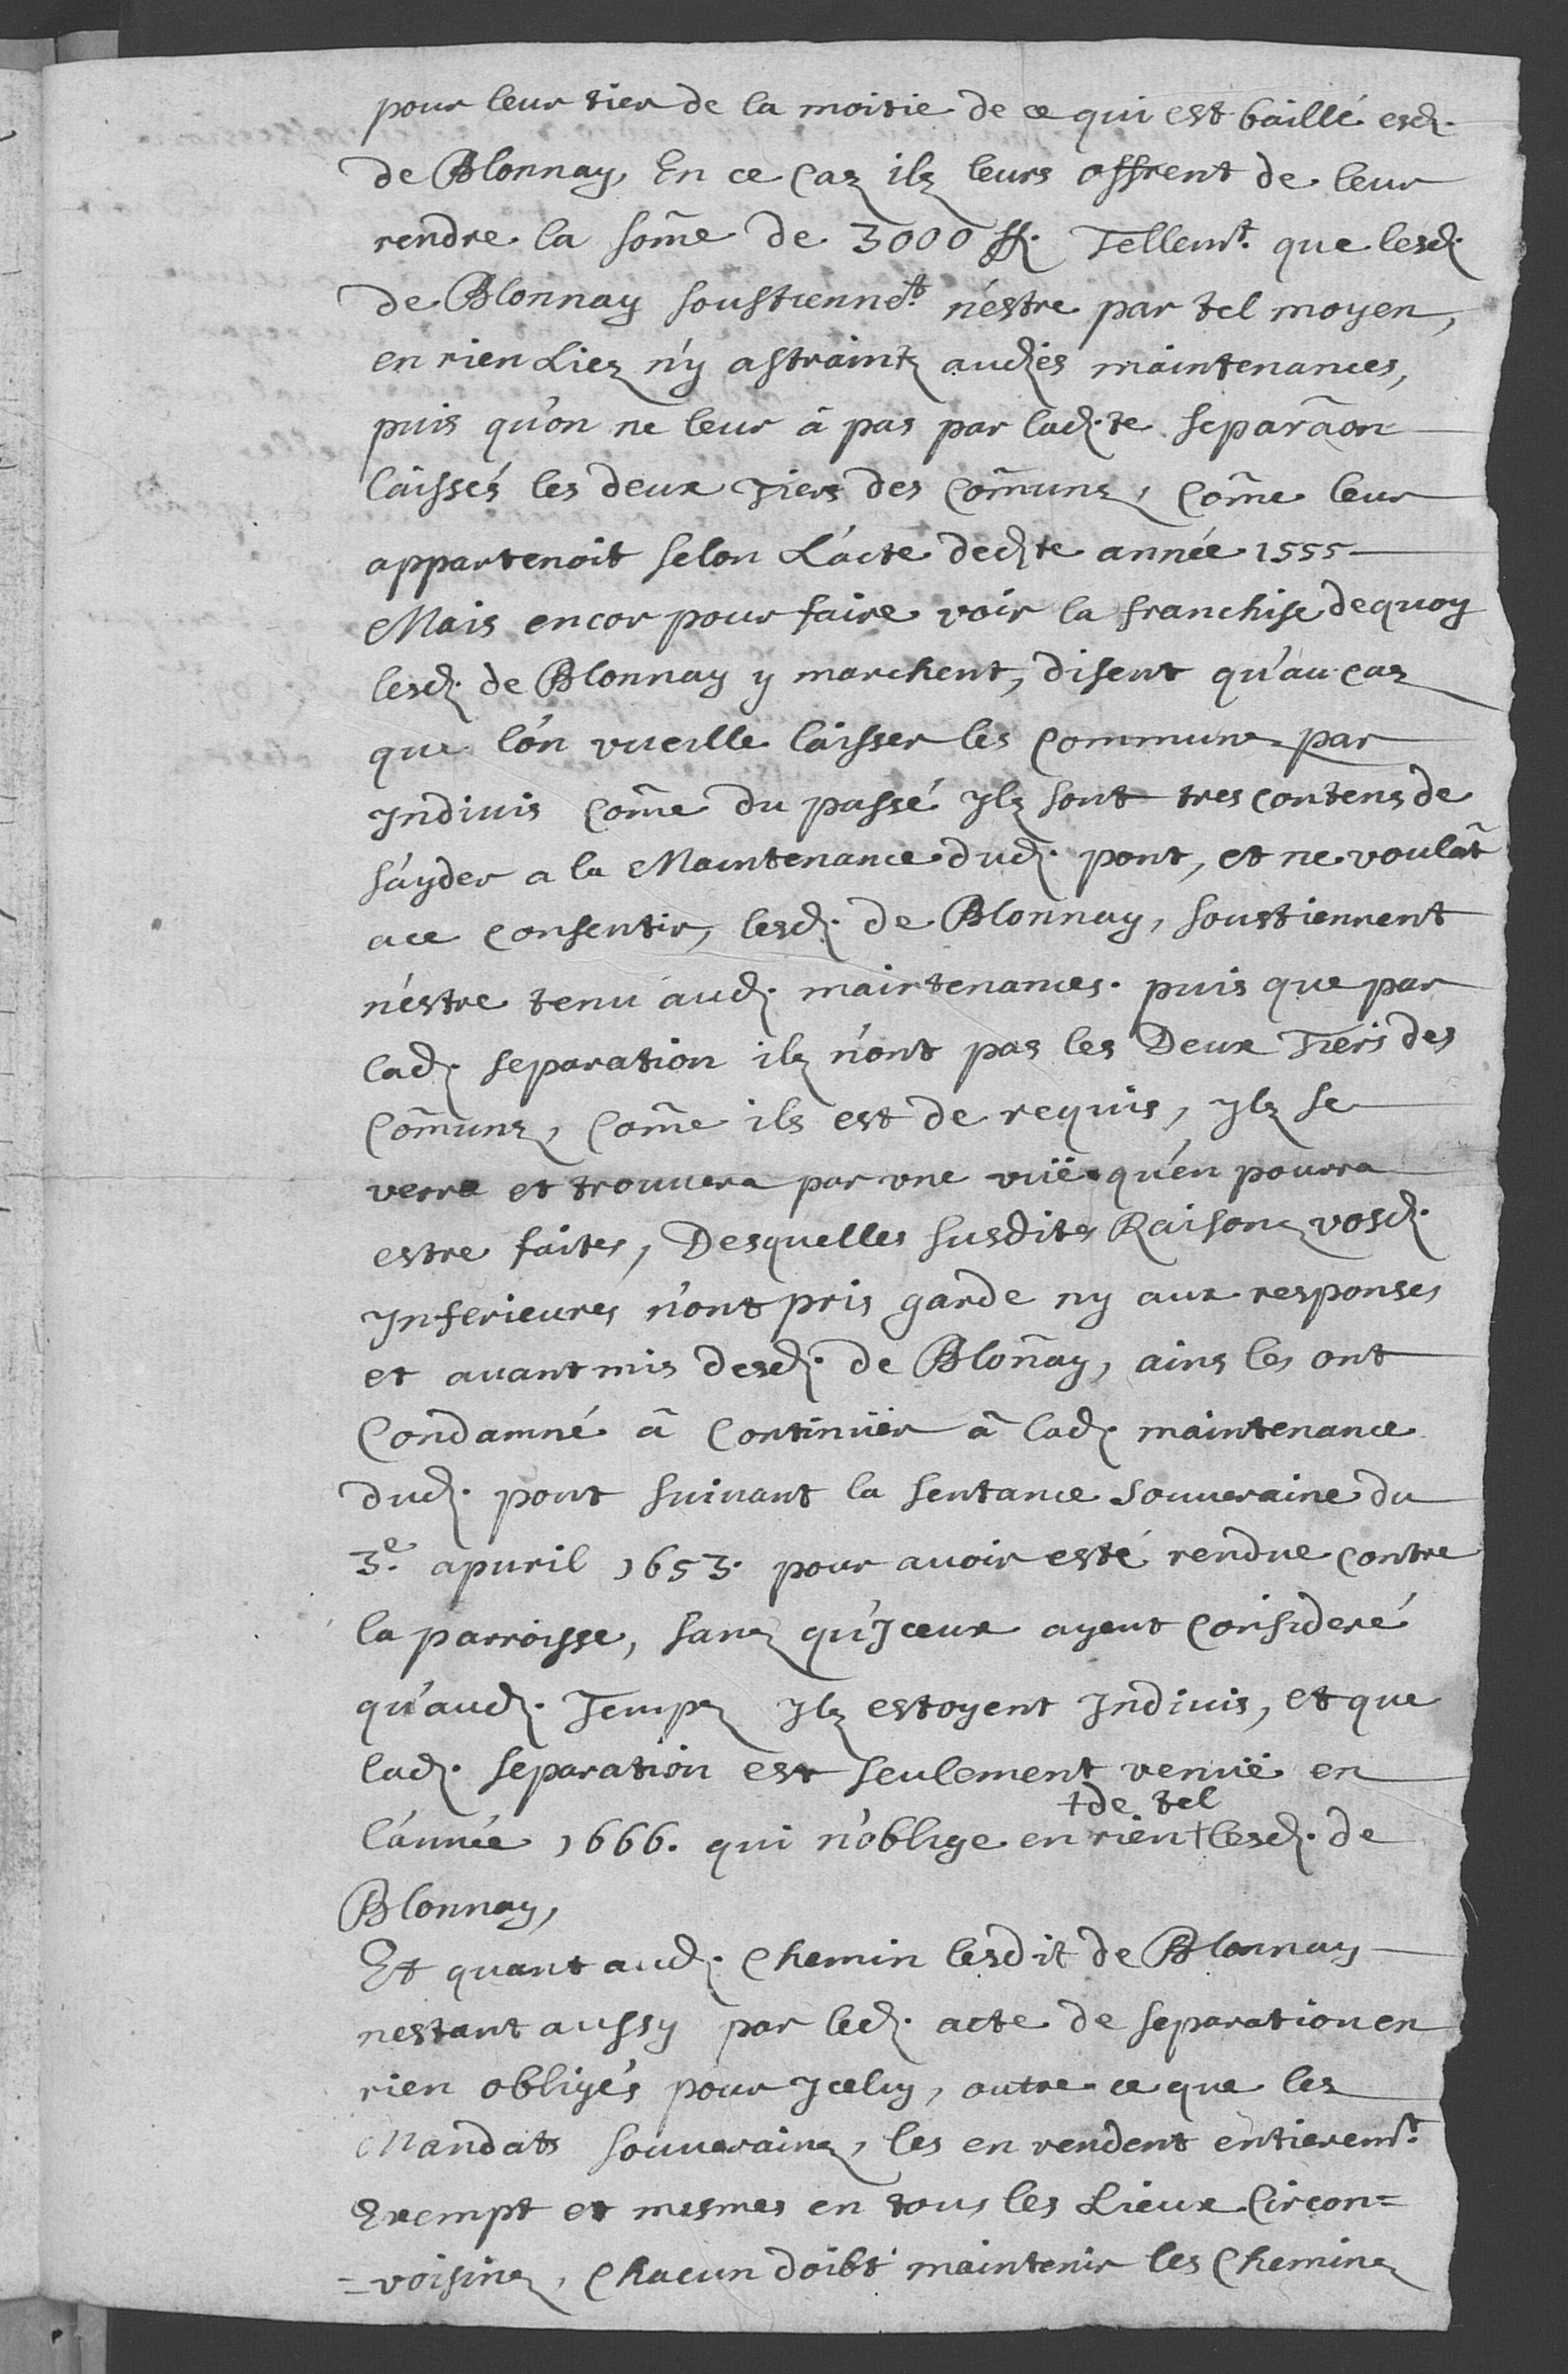 pour leur tier de la moitie de ce qui est baillé esd.
de Blonnay, En ce caz ilz leurs offrent de leur
rendre la som̃e de 3000 ff. Tellemt. que lesd.
de Blonnay soustiennēt. n'estre par tel moyen,
en rien Liez n'y astraintz aud.es maintenances,
puis qu'on ne leur â pas par lad.te separãon
laissés les deux Tiers des Com̃unz, Com̃e leur
appartenoit selon L'acte ded.te année 1555
Mais encor pour faire voir la franchise dequoy
lesd. de Blonnay y marchent, disent qu'au caz
que l'on vueille laisser les Commune par
Indivis Com̃e du passé Ylz sont tres contens de
s'ayder a la Maintenance dud. pont, et ne voulãt
ace consentir, lesd. de Blonnay, soustiennent
n'estre tenu aud. maintenances. puis que par
lad. separation ilz n'ont pas les Deux Tiers des
Com̃unz, Com̃e ils est de requis, Ylz se
verra et trouvera par vne vüe qu'en pourra
estre faites, Desquelles susdites Raisonz vosd.
Inferieures n'ont pris garde ny aux responses
et avant mis desd. de Blon̄ay, ains les ont
Condamné â Continüer â lad. maintenance
dud. pont suivant la sentance Souveraine du
3e. apuril 1653. pour avoir esté rendue contre
la parroisse, sanz qu'Iceux ayent Consideré
qu'aud. Tempz Ylz estoyent Indivis, et que
lad. separation est seulement venüe en
+de tel
l'année 1666. qui n'oblige en rien + lesd. de
Blonnay,
Et quant aud. Chemin lesdit de Blonnay
nestant aussy par led. acte de separation en
rien obligés pour Iceluy, outre ce que les
Mandats souverainz, les en rendent entieremt.
Exempt et mesmes en tous les Lieux Circon=
=voisinz, Chacun doibt maintenir les Cheminz